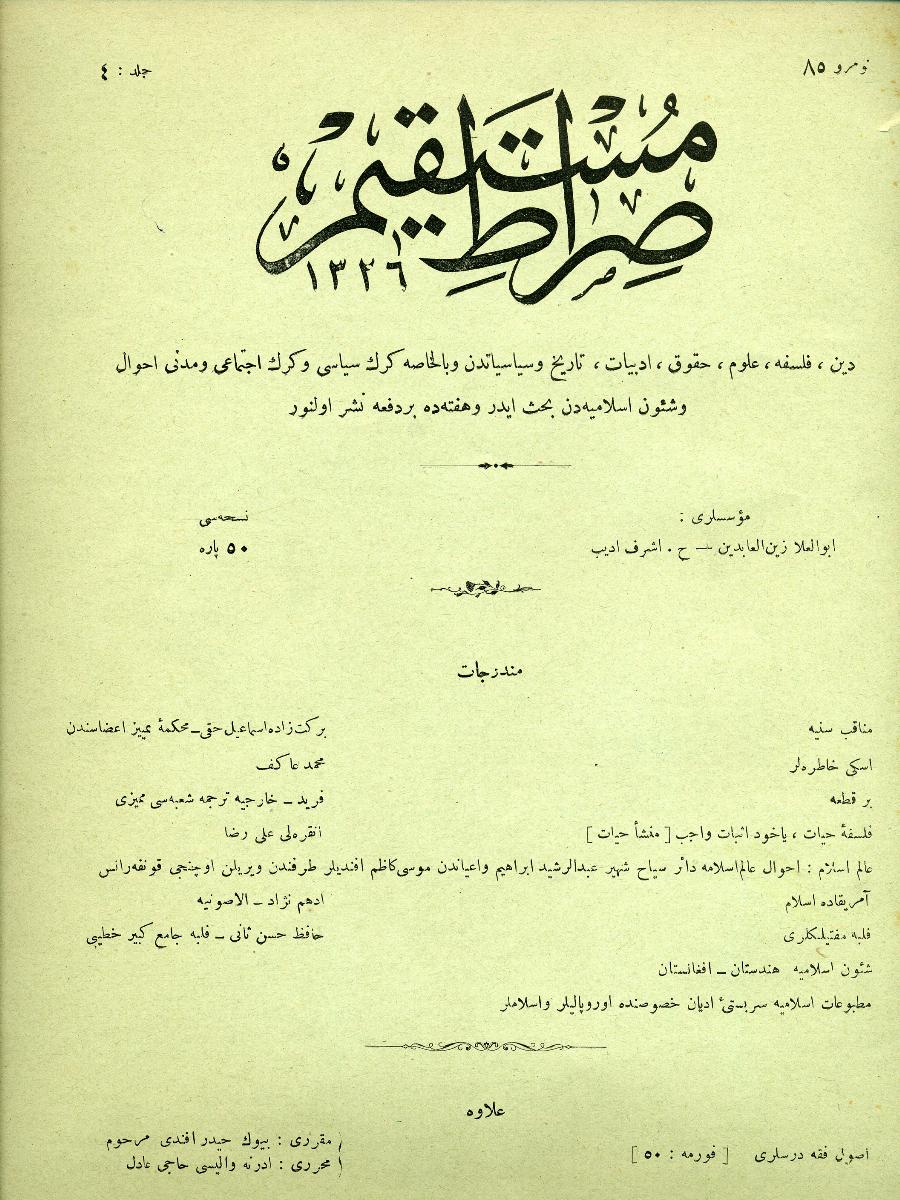 نومرو ٨٥
جلد : ٤
صِراطِ مُسْتَقيم
١٣٢٦
دين ، فلسفه ، علوم ، حقوق ، ادبيات ، تاريخ وسياسياتدن وبالخاصه كرك سياسى وكرك اجتماعى ومدنى احوال
وشئون اسلاميه‌دن بحث ايدر وهفته‌ده بردفعه نشر اولنور
مؤسسلرى :
ابوالعلا زين‌العابدين — ح . اشرف اديب
نسخه‌سى
٥٠ پاره
مندرجات
مناقب سنيه
بركت‌زاده‌اسماعيل‌حقى ــ محكمهٔ تمييز اعضاسندن
اسكى خاطره‌لر
محمد عاكف
بر قطعه
فريد ــ خارجيه ترجمه شعبه‌سى مميزى
فلسفهٔ حيات ، ياخود اثبات واجب [ منشأ حيات ]
انقره‌لى على رضا
عالم اسلام : احوال عالم‌اسلامه دائر سياح شهير عبدالرشيد ابراهيم واعياندن موسى‌كاظم افنديلر طرفندن ويريلن اوچنجى قونفه‌رانس
آمريقاده اسلام
ادهم نژاد ــ الاصونيه
فلبه مفتيلكلرى
حافظ حسن ثانى ــ فلبه جامع كبير خطيبى
شئون اسلاميه هندستان ــ افغانستان
مطبوعات اسلاميه سربستئ اديان خصوصنده اوروپاليلر واسلاملر
علاوه
اصول فقه درسلرى [ فورمه : ٥٠ ]
مقررى : بيوك حيدر افندى مرحوم
محررى : ادرنه واليسى حاجى عادل